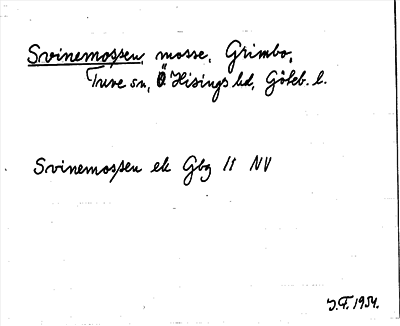 Svinemossen, mosse, Grimbo,
Tuve sn, Ö Hisings hd, Göteb. l.
Svinemossen ek Gbg 11 NV
J.F. 1954.